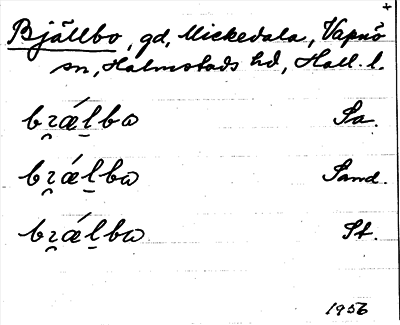 +
Bjällbo, gd, Mickedala, Vapnö
sn, Halmstads hd, Hall. l.
bɪ̯ǽl̠bɷ Sa.
bɪ̯ǽl̠bɷ Sand.
bɪ̯ǽl̠bɷ St.
1956